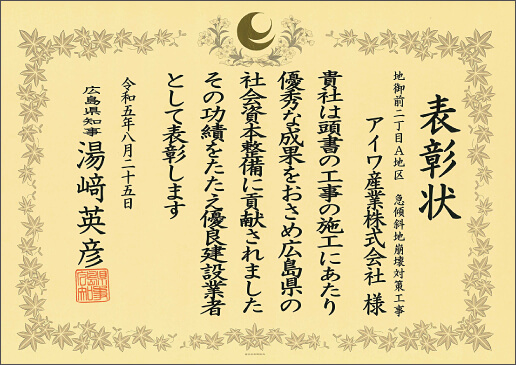 表彰状
地御前二丁目A地区　急傾斜地崩壊対策工事
アイワ産業株式会社 様
貴社は頭書の工事の施工にあたり
優秀な成果をおさめ広島県の
社会資本整備に貢献されました
その功績をたたえ優良建設業者
として表彰します
令和五年八月二十五日
広島県知事
湯﨑英彦